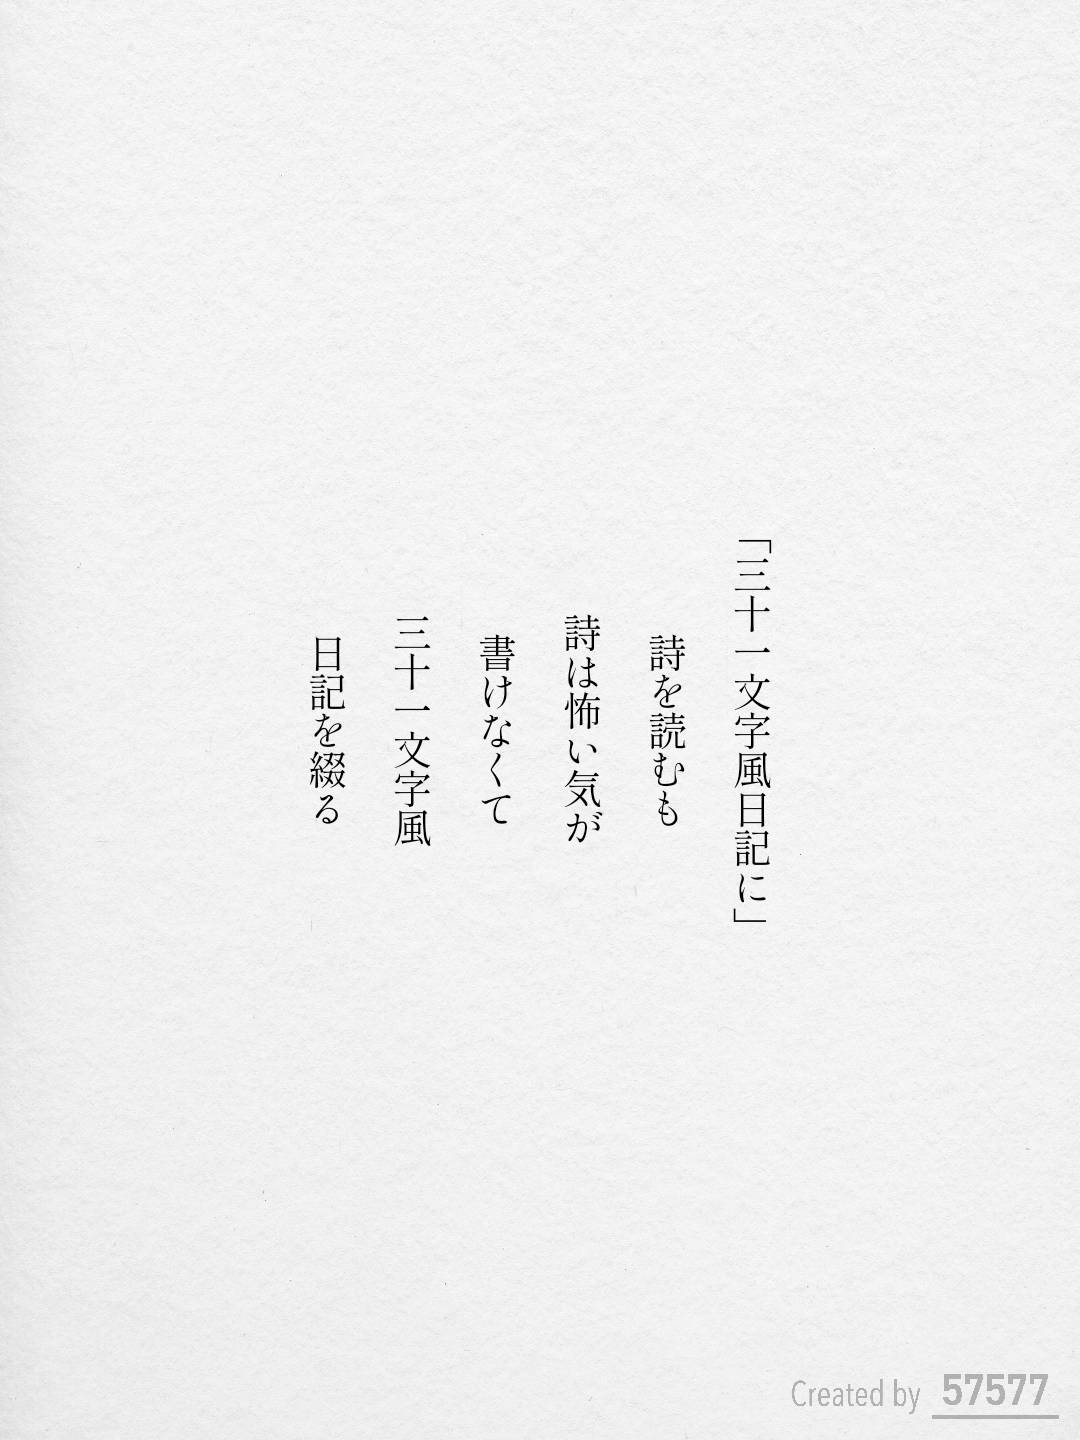 「三十一文字風日記に」
詩を読むも
詩は怖い気が
書けなくて
三十一文字風
日記を綴る
Created by 57577